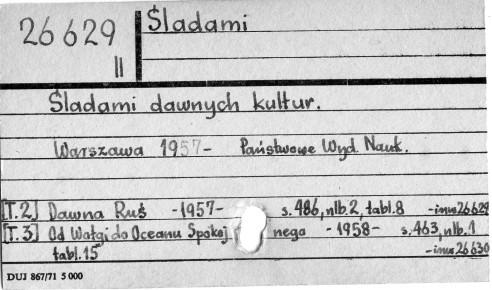 26629
II
Śladami
Śladami dawnych kultur.
Warszawa 1957- Państwowe Wyd. Nauk.
[T.2] Dawna Ruś -1957- s.486, nlb.2, tabl.8 -inw.26629
[T.3] Od Wołgi do Oceanu Spokoj nego -1958- s.463, nlb.1
tabl.15 -inw.26630
DUJ 867/71 5 000